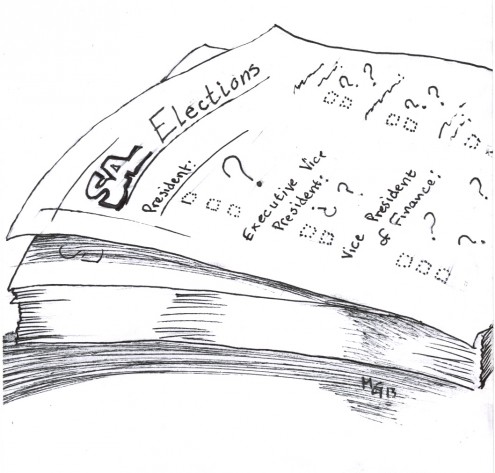 SA Elections
President:
?
Executive Vice
President:
? ?
Vice President
of Finance:
? ?
? ?
? ?
?
MG 13